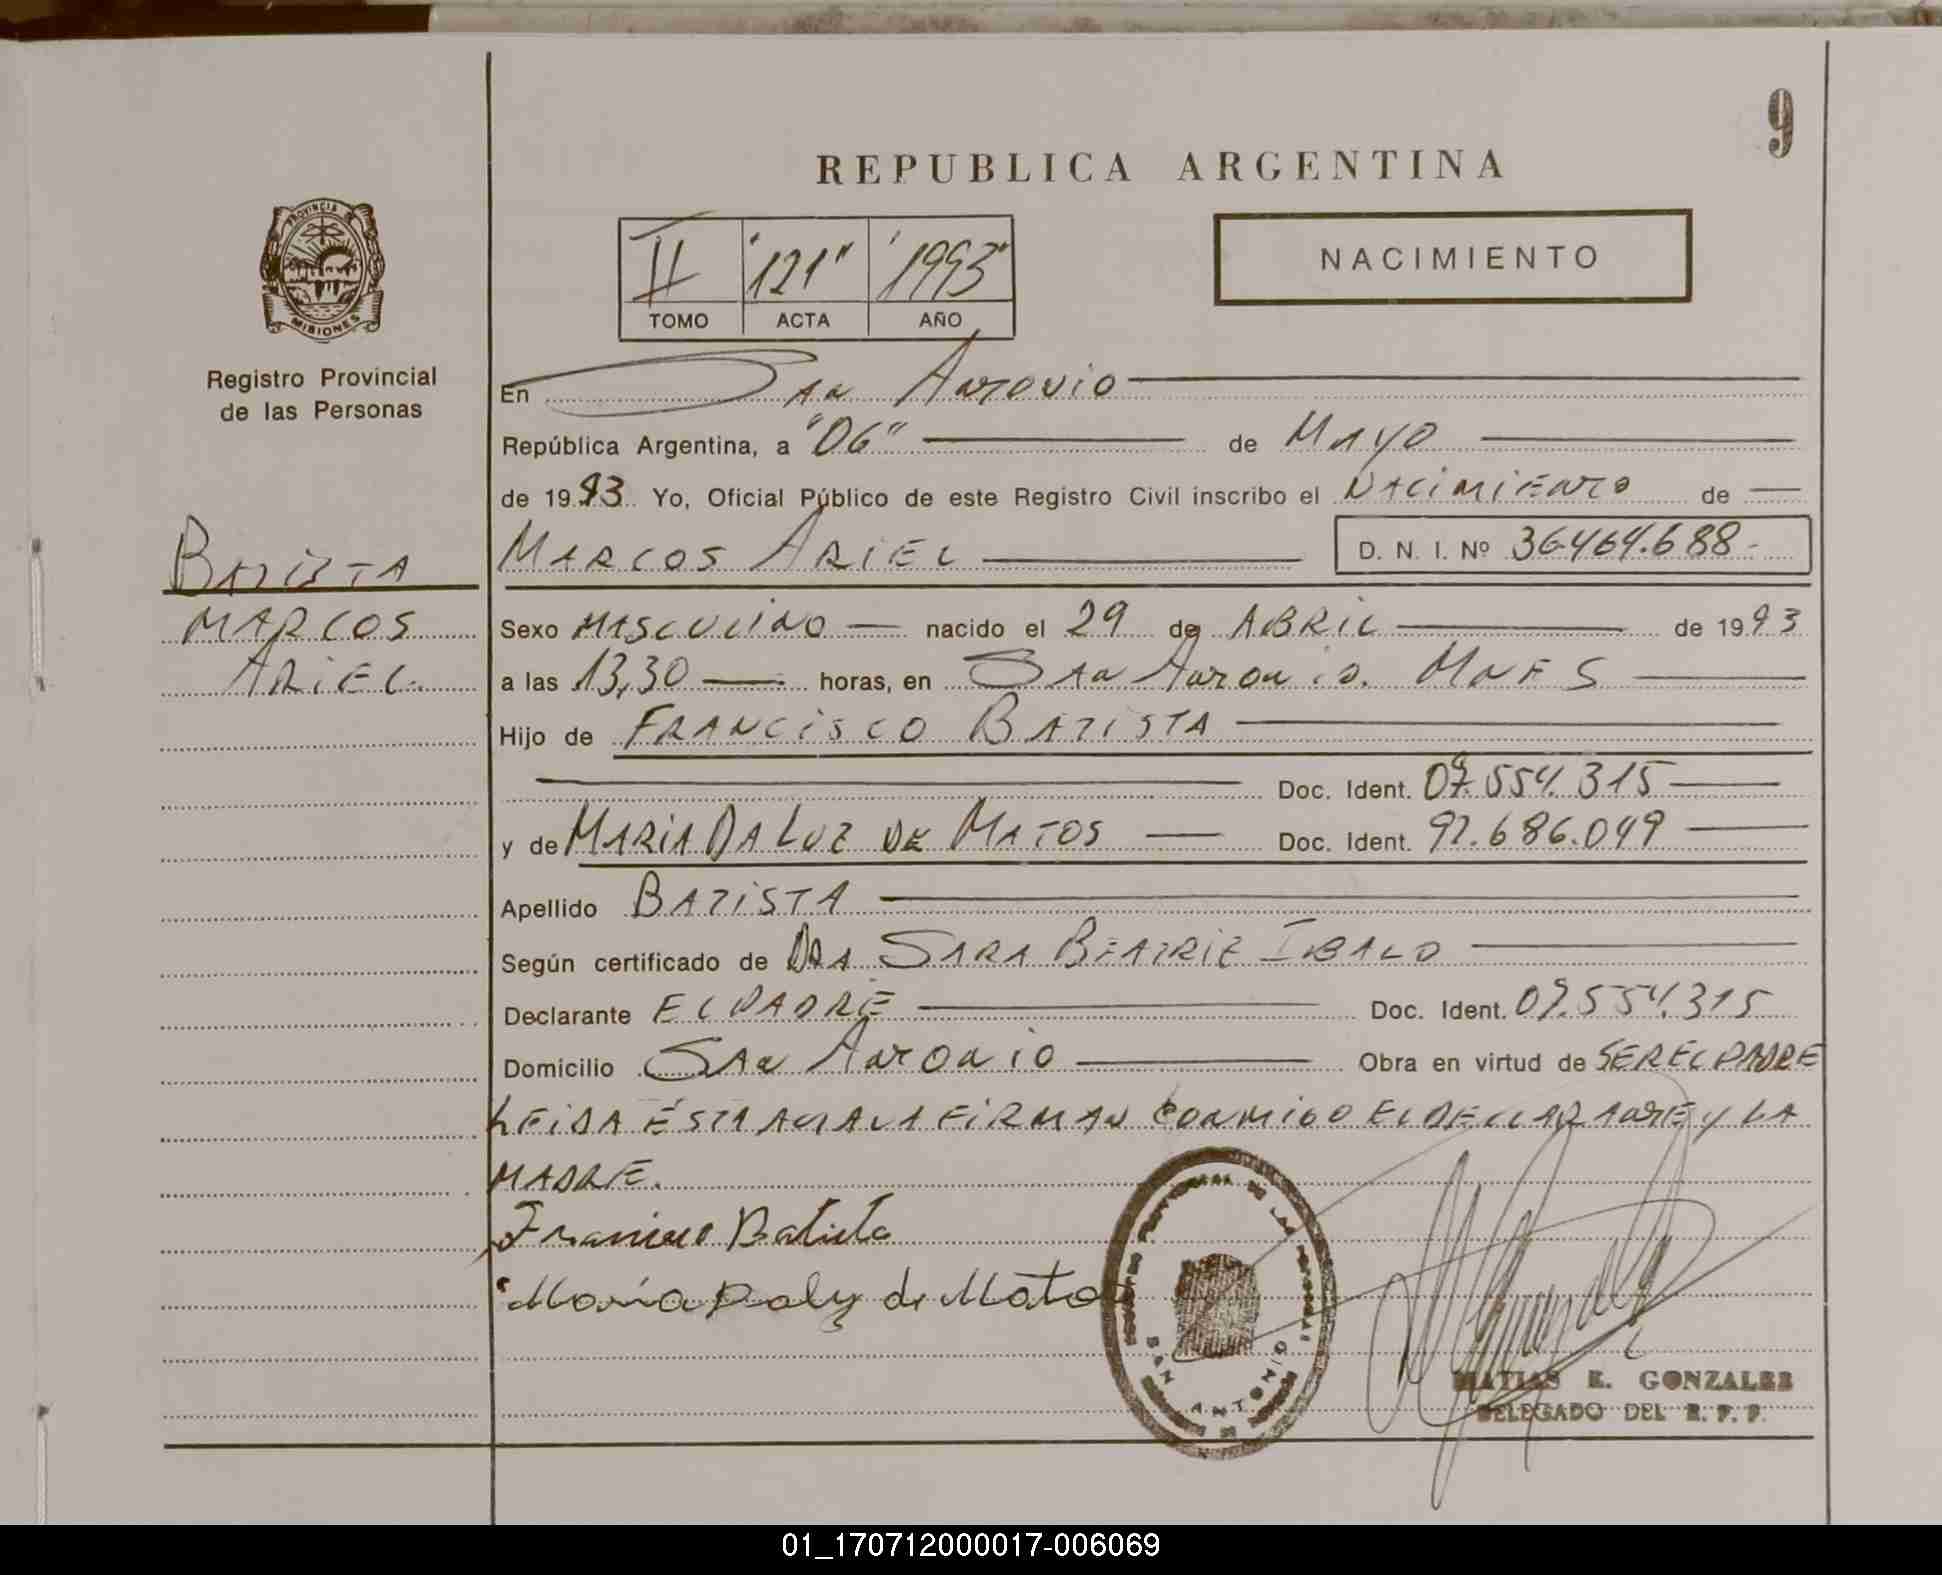 9
REPUBLICA ARGENTINA
PROVINCIA DE
MISIONES
II "121" "1993"
TOMO ACTA AÑO
NACIMIENTO
Registro Provincial
de las Personas
En San Antonio
República Argentina, a "06" de Mayo
de 1993. Yo, Oficial Público de este Registro Civil inscribo el Nacimiento de
BATISTA
MARCOS
ARIEL.
MARCOS ARIEL D. N. I. Nº 36.464.688-
Sexo MASCULINO nacido el 29 de ABRIL de 1993
a las 13,30 horas, en San Antonio. MNES
Hijo de FRANCISCO BATISTA
Doc. Ident. 07.554.315
y de MARIA DA LUZ DE MATOS Doc. Ident. 92.686.049
Apellido BATISTA
Según certificado de DRA SARA BEATRIZ IBALO
Declarante EL PADRE Doc. Ident. 07.554.315
Domicilio San Antonio Obra en virtud de SER EL PADRE
LEIDA ESTA ACTA LA FIRMAN CONMIGO EL DECLARANTE Y LA
MADRE.
Francisco Batista
Maria Daluz de Matos
SAN ANTONIO
MATIAS E. GONZALEZ
DELEGADO DEL R. P. P.
01_170712000017-006069